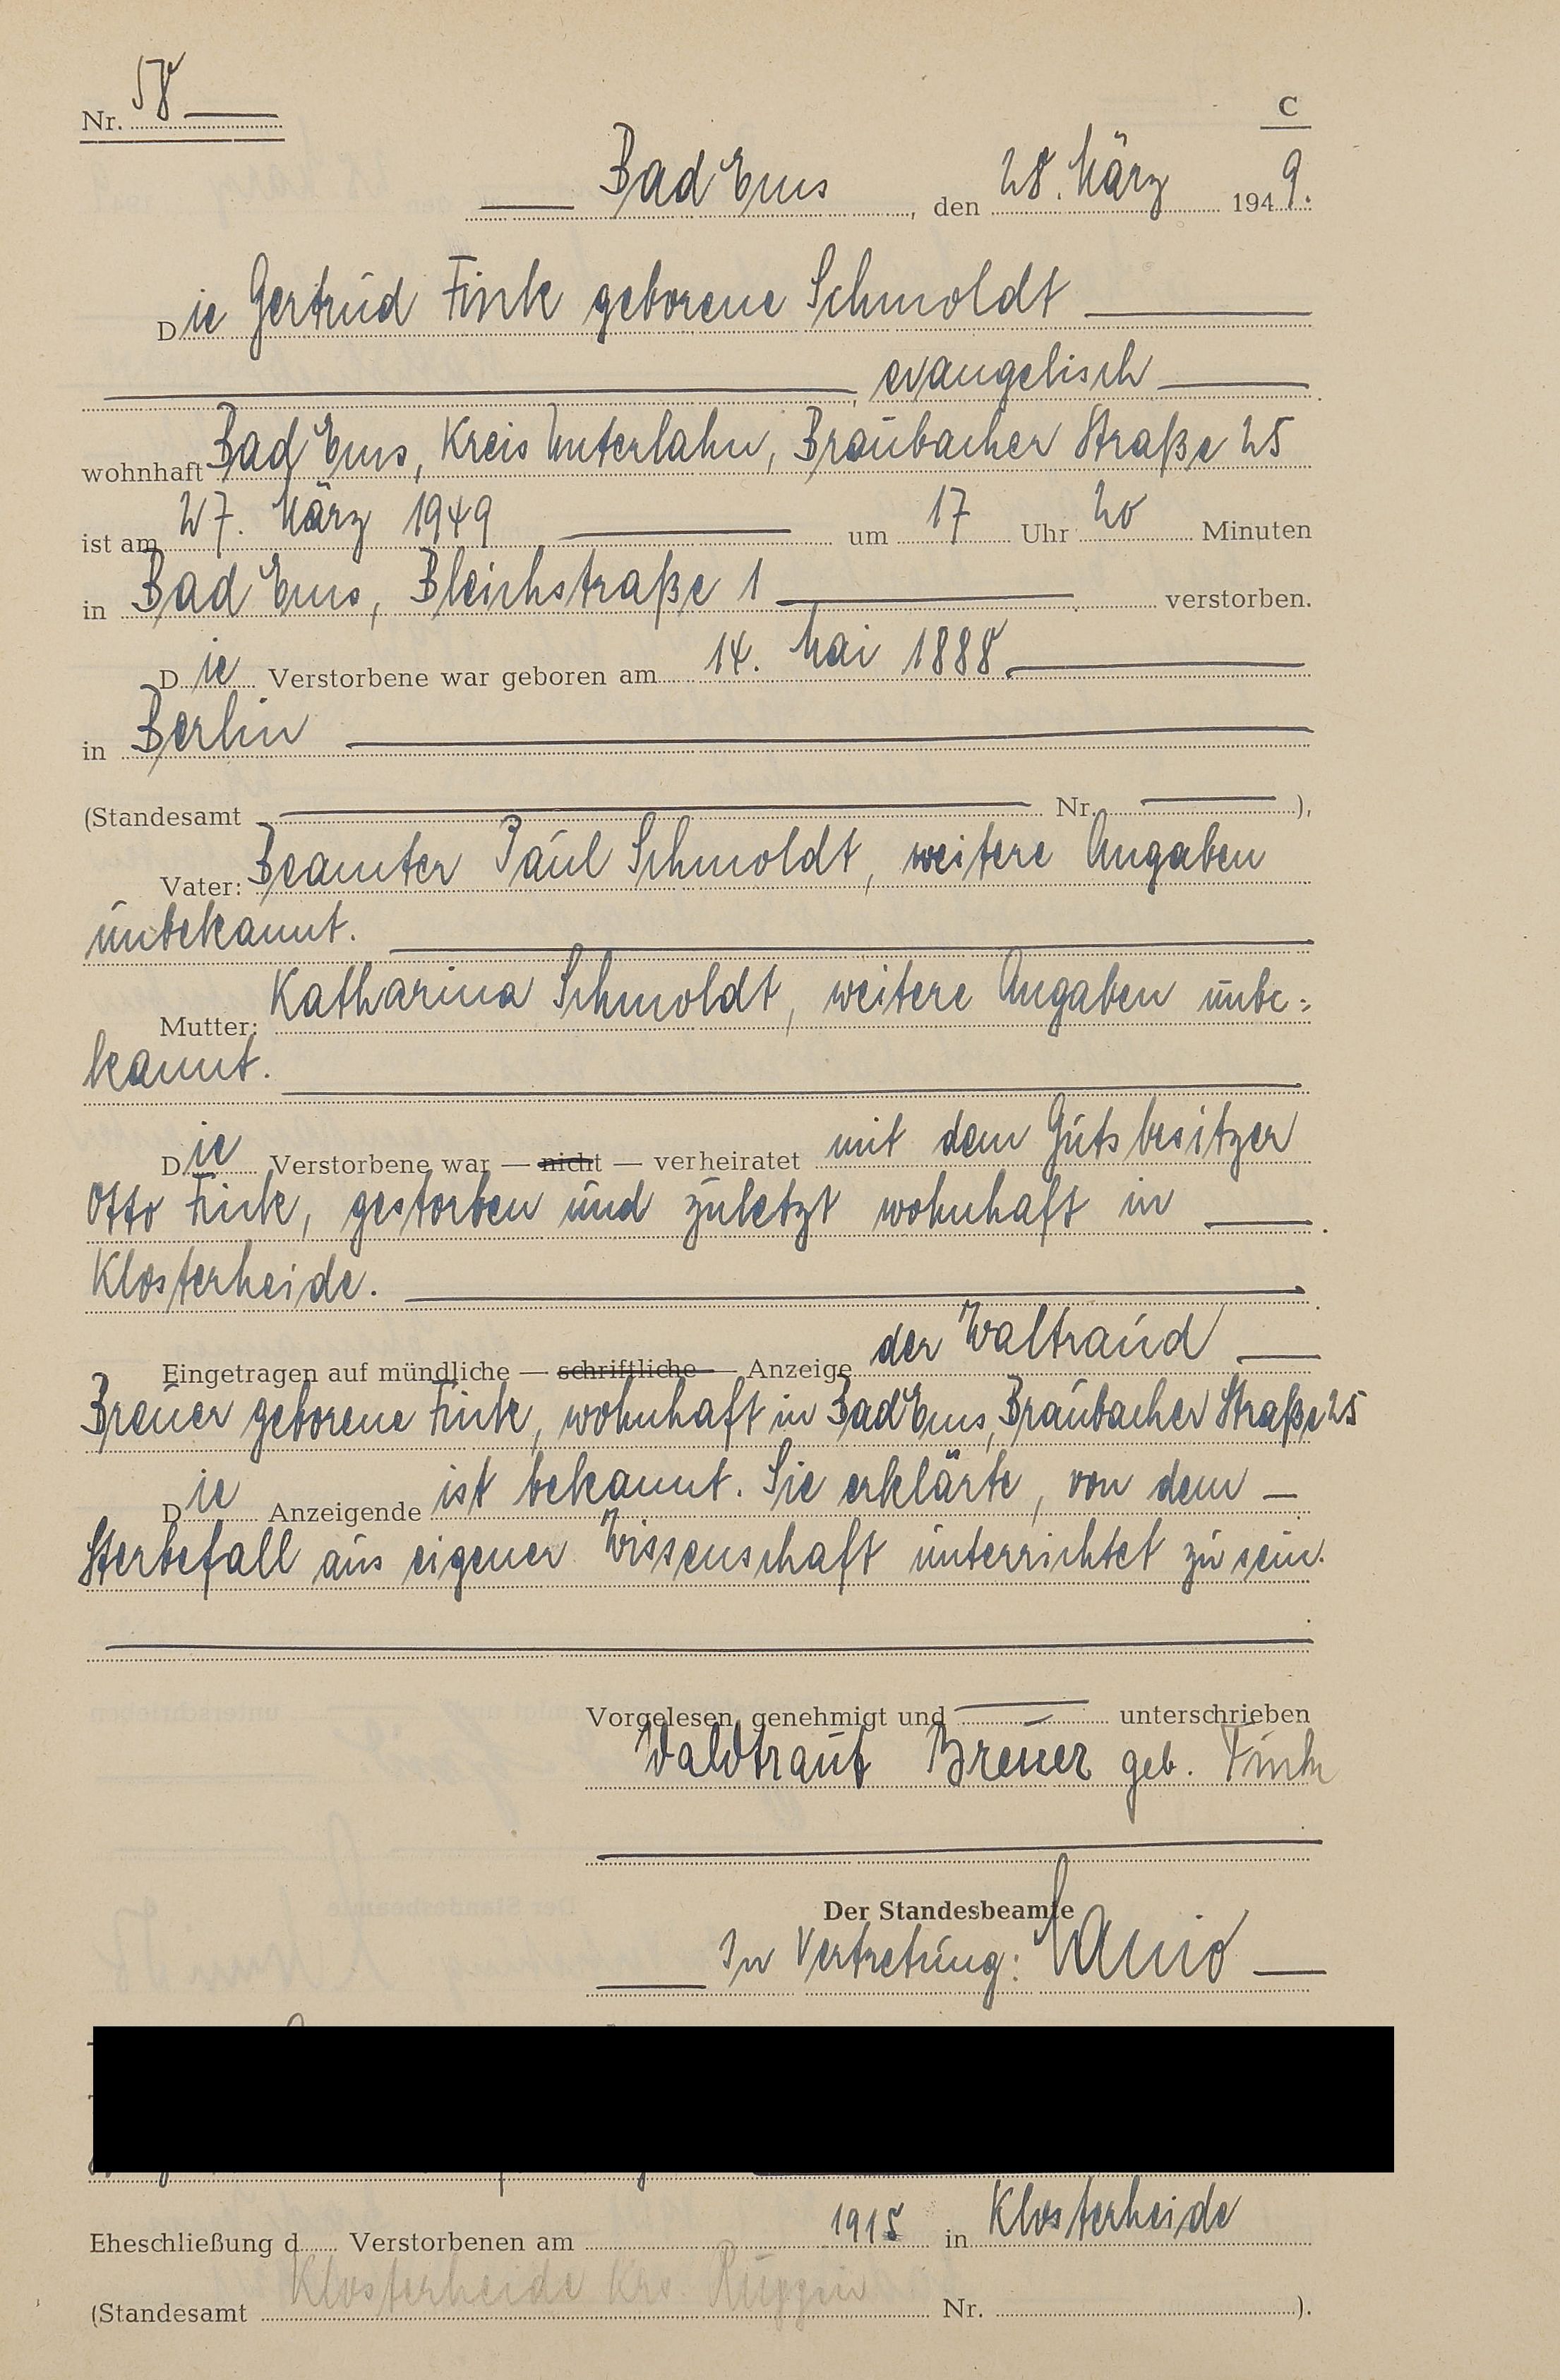 Nr. 58
C
Bad Ems, den 28. März 1949.
Die Gertrud Fink geborene Schmoldt
, evangelisch
wohnhaft Bad Ems, Kreis Unterlahn, Braubacher Straße 25
ist am 27. März 1949 um 17 Uhr 20 Minuten
in Bad Ems, Bleichstraße 1 verstorben.
Die Verstorbene war geboren am 14. Mai 1888.
in Berlin
(Standesamt Nr. ),
Vater: Beamter Paul Schmoldt, weitere Angaben
unbekannt.
Mutter: Katharina Schmoldt, weitere Angaben unbe=
kannt.
Die Verstorbene war — nicht — verheiratet mit dem Gutsbesitzer
Otto Fink, gestorben und zuletzt wohnhaft in
Klosterheide.
Eingetragen auf mündliche — schriftliche — Anzeige der Waltraud
Breuer geborene Fink, wohnhaft in Bad Ems, Braubacher Straße 25
Die Anzeigende ist bekannt. Sie erklärte, von dem
Sterbefall aus eigener Wissenschaft unterrichtet zu sein.
Vorgelesen, genehmigt und unterschrieben
Waldtraut Breuer geb. Fink
Der Standesbeamte
In Vertretung:
Eheschließung d Verstorbenen am 1915 in Klosterheide
(Standesamt Klosterheide Krs. Ruppin Nr. ).